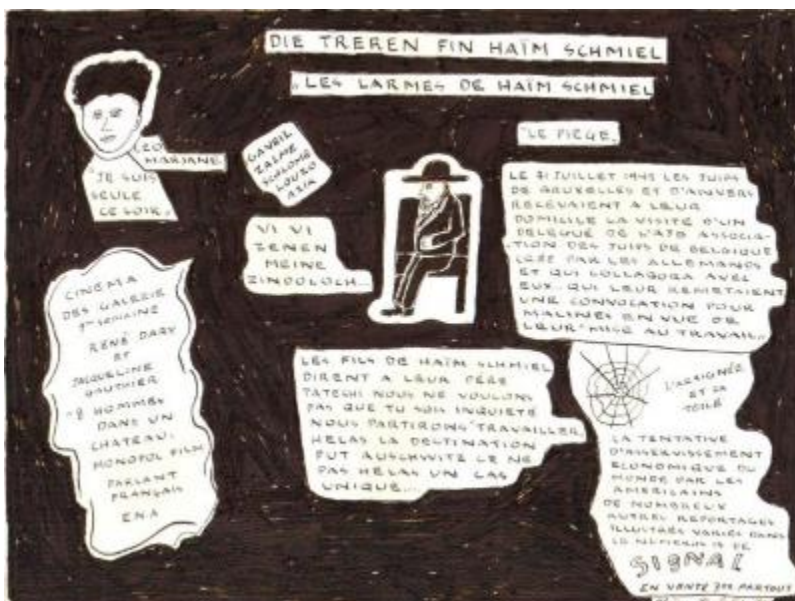 DIE TREREN FIN HAÏM SCHMIEL
"LES LARMES DE HAÏM SCHMIEL
"LE PIEGE.
LEO
MARJANE
"JE SUIS
SEULE
CE SOIR"
GAVRIL
ZALME
SCHLOMÉ
LOUZO
AZIA
VI VI
ZENEN
MEINE
ZINDOLOCH...
LE 31 JUILLET 1942 LES JUIFS
DE BRUXELLES ET D'ANVERS
RECEVAIENT A LEUR
DOMICILE LA VISITE D'UN
DELEGUE DE L'AJB ASSOCIA-
TION DES JUIFS DE BELGIQUE
CREE PAR LES ALLEMANDS
ET QUI COLLABORA AVEC
EUX. QUI LEUR REMETTAIENT
UNE CONVOCATION POUR
MALINES EN VUE DE
LEUR "MISE AU TRAVAIL"
CINEMA
DES GALERIE
SEMAINE
RENÉ DARY
ET
JACQUELINE
GAUTHIER
"8 HOMMES
DANS UN
CHATEAU"
MONOPOL FILM
PARLANT
FRANÇAIS
E.N.A
LES FILS DE HAÏM SCHMIEL
DIRENT A LEUR PÈRE
TATESHI NOUS NE VOULONS
PAS QUE TU SOIS INQUIETÉ
NOUS PARTIRONS "TRAVAILLER.
HELAS LA DESTINATION
FUT AUSCHWITZ CE NE
PAS HELAS UN CAS
UNIQUE...
L'ARAIGNÉE
ET SA
TOILE
LA TENTATIVE
D'ASSERVISSEMENT
ECONOMIQUE DU
MONDE PAR LES
AMERICAINS
DE NOMBREUX
AUTRES REPORTAGES
ILLUSTRÉS VARIÉS DANS
LE NUMEROS DE
SIGNAL
EN VENTE PARTOUT